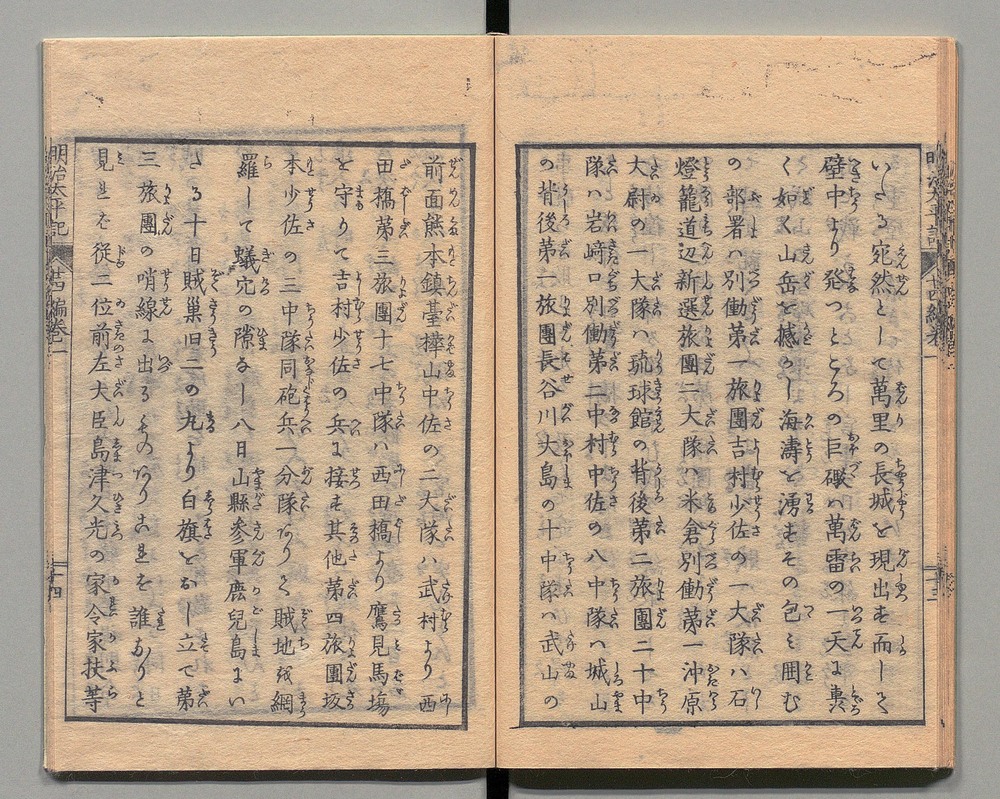 いたる宛然として萬里の長城を現出せ而して
壁中より発つところの巨礮ハ萬雷の一天に轟
く如く山岳を撼かし海濤を湧せその包ミ囲む
の部署ハ別働第一旅團吉村少佐の一大隊ハ石
燈籠道辺新選旅團二大隊ハ米倉別働第一沖原
大尉の一大隊ハ琉球館の背後第二旅團二十中
隊ハ岩﨑口別働第二中村中佐の八中隊ハ城山
の背後第一旅團長谷川大島の十中隊ハ武山の
前面熊本鎮臺樺山中佐の二大隊ハ武村より西
田橋第三旅團十七中隊ハ西田橋より鷹見馬塲
を守りて吉村少佐の兵に接せ其他第四旅團坂
本少佐の三中隊同砲兵一分隊ありて賊地を網
羅して蟻穴の隙なし八日山縣参軍鹿児島にい
たる十日賊巣旧二の丸より白旗をおし立て第
三旅團の哨線に出るものありこれを誰なりと
見れは従二位前左大臣島津久光の家令家扶等
明治太平記
廿四編巻一
十四